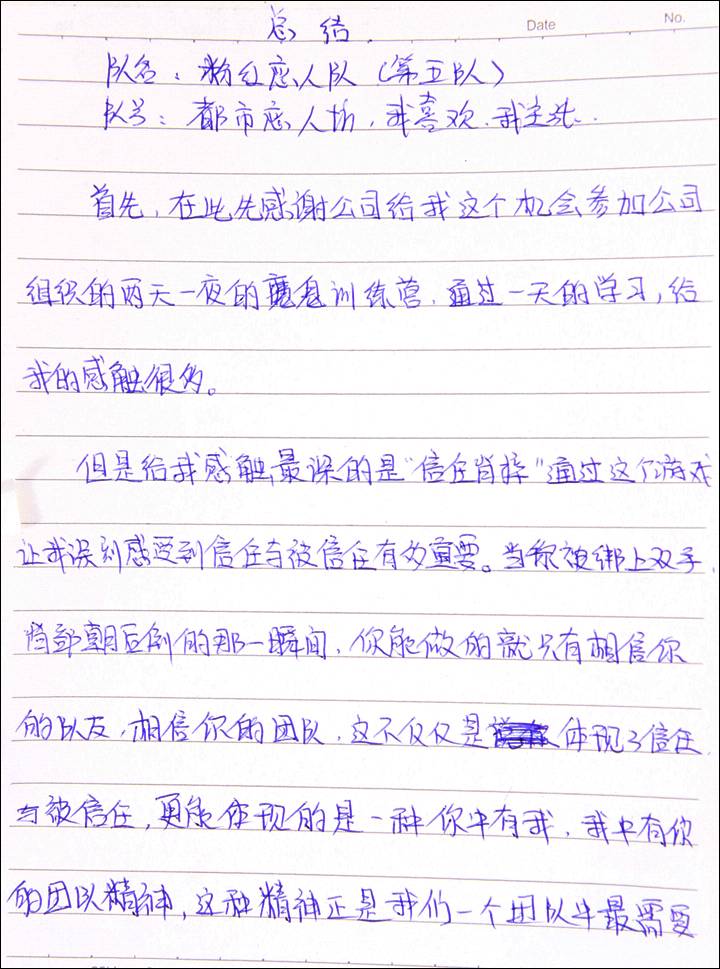 Date
No.
总结.
队名：粉红恋人队（第五队）
队号：都市恋人坊，我喜欢.我主张..
首先，在此先感谢公司给我这个机会参加公司
组织的两天一夜的魔鬼训练营.通过一天的学习，给
我的感触很多。
但是给我感触最深的是“信任背摔”通过这个游戏
让我深刻感受到信任与被信任有多重要。当你被绑上双手.
背部朝后倒的那一瞬间，你能做的就只有相信你
的队友，相信你的团队，这不仅仅是体现了信任
与被信任，更能体现的是一种你中有我，我中有你
的团队精神，这种精神正是我们一个团队中最需要